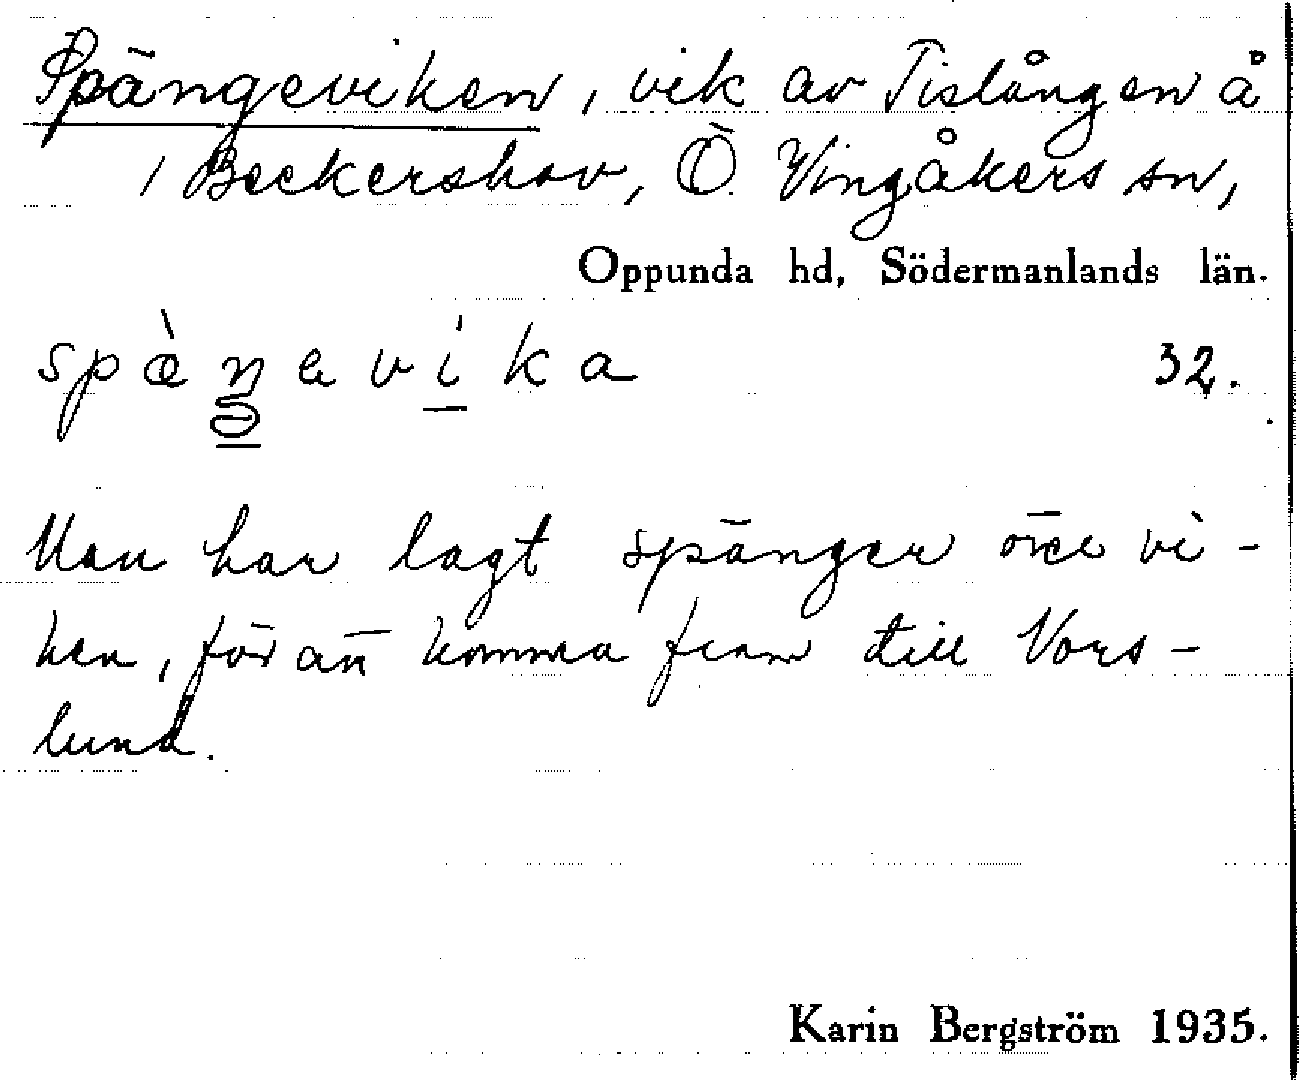 Spängeviken, vik av Tislången å
/ Beckershov, Ö. Vingåkers sn,
Oppunda hd, Södermanlands län.
spæ̀ŋavika 32.
Man har lagt spänger över vi-
ken, för att komma fram till Vors-
lund.
Karin Bergström 1935.